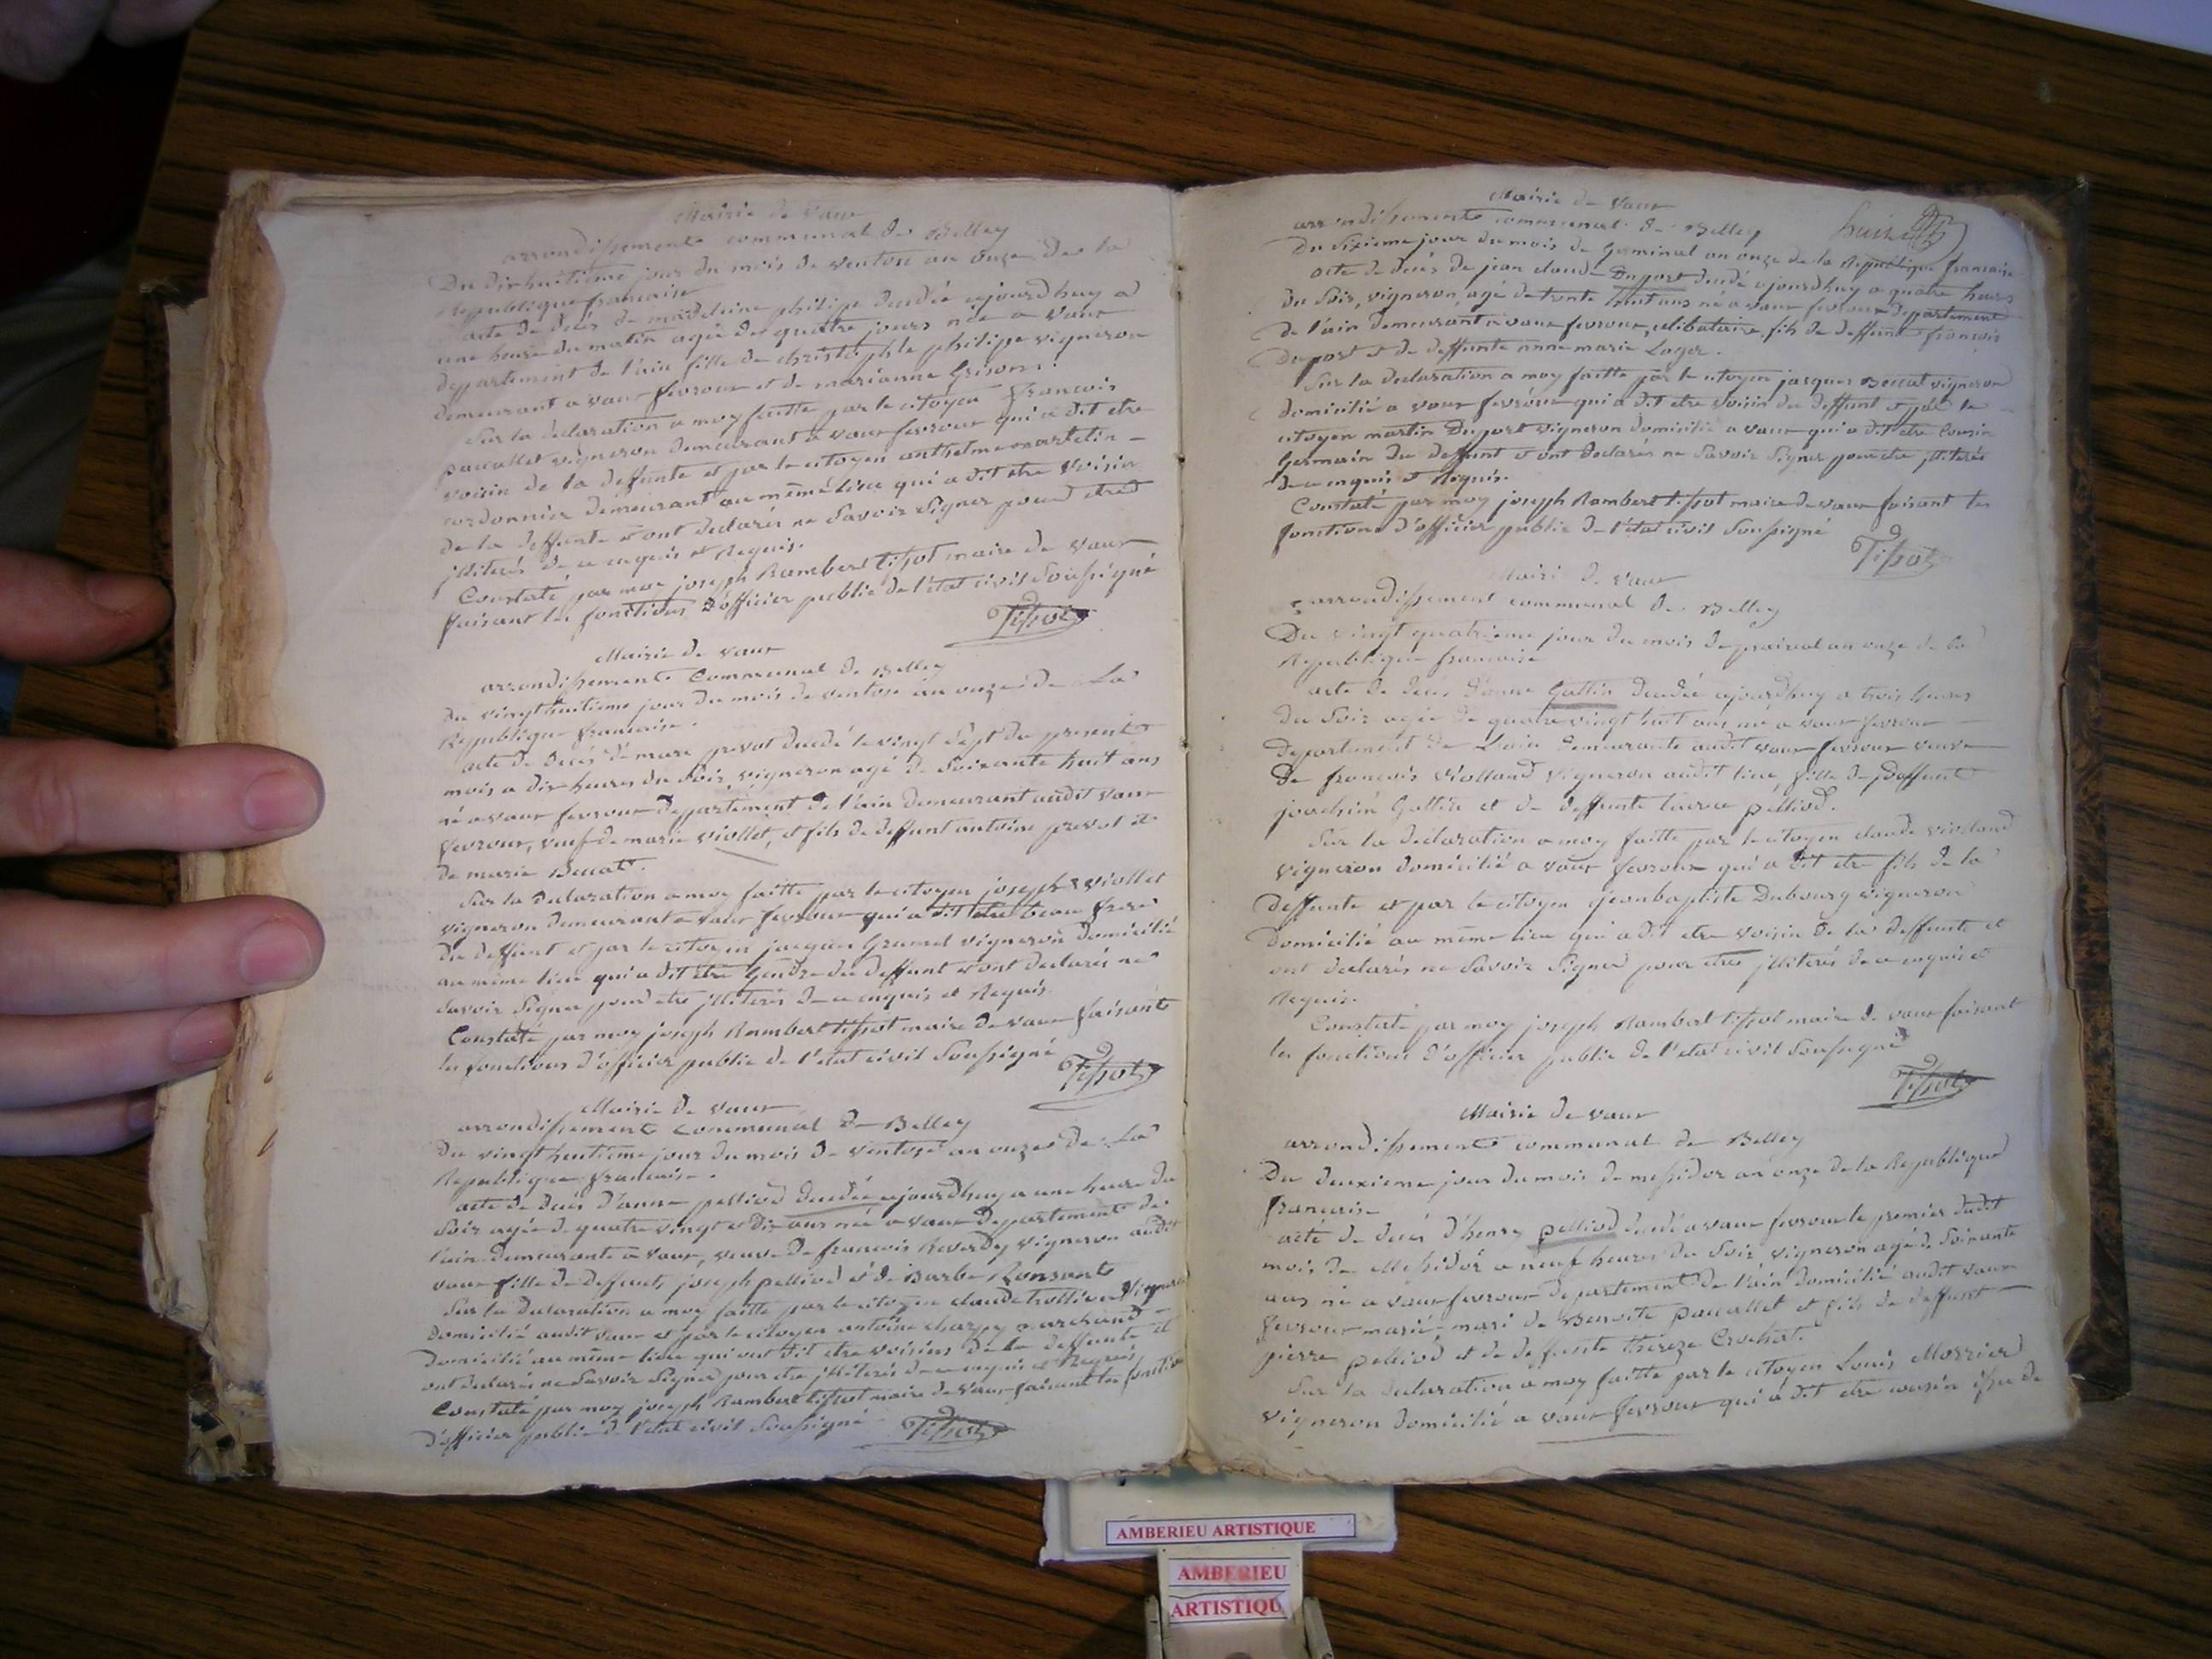 Mairie de vaux
arrondissement communal de Belley
Du dix huitieme jour du mois de ventose an onze de la
Republique francaise
acte de decès de madeleine philipe decedée ajourdhuy a
une heure du matin agée de quatre jours née a vaux
deppartement de l'ain fille de christophle philipe vigneron
demeurant a vaux fevroux et de marianne Grisons.
Sur la declaration a moy faitte par le citoyen françois
paccallet vigneron demeurant a vaux fevroux qui a dit etre
voisin de la deffunte et par le citoyen anthelme martelin
cordonnier demeurant au même lieu qui a dit etre voisin
de la deffunte et ont declarés ne savoir signer pour etre
jlliterés de ce enquis et Requis.
Constaté par moy joseph Rambert tissot maire de vaux
faisant les fonctions d'officier public de l'état civil soussigné
Tissot
Mairie de vaux
arrondissement Communal de Belley
du vingt huitieme jour du mois de ventose an onze de La
Republique francaise.
acte de decés de marc prevot decedé le vingt sept du present
mois a dix heures du soir, vigneron agé de soixante huit ans
né a vaux fevroux deppartement de l'ain demeurant audit vaux
fevroux, veuf de marie viollet, et fils de deffunt antoine prevot et
de marie Beccat.
Sur la declaration a moy faitte par le citoyen joseph viollet
vigneron demeurant a vaux fevroux qui a dit etre beau frere
du deffunt et par le citoyen jacques Grumel vigneron domicilié
au même lieu qui a dit etre Gendre du deffunt et ont declarés ne
savoir signer pour etre jlliterés de ce enquis et Requis.
Constaté par moy joseph Rambert tissot maire de vaux faisant
les fonctions d'officier public de l'etat civil soussigné
Tissot
Mairie de vaux
arrondissement Communal de Belley
Du vingt huitieme jour du mois de ventose an onze de La
Republique francaise.
acte de decés d'anne pelliod decedée ajourdhuy a une heure du
soir agée de quatre vingt et dix ans née a vaux departement de
l'ain demeurante a vaux, veuve de francois Reverdy vigneron audit
vaux fille de deffunts joseph pelliod et de Barbe Ronsant
Sur la declaration a moy faitte par le citoyen claude trollier vigneron
domicilié audit vaux et par le citoyen antoine charpy marchand
domicilié au même lieu qui ont dit etre voisins de la deffunte et
ont declarés ne savoir signer pour etre jlliterés de ce enquis et Requis
Constaté par moy joseph Rambert tissot maire de vaux faisant les fonctions
d'officier public de l'etat civil soussigné
Tissot
Mairie de vaux
arrondissement communal de Belley
Du sixieme jour du mois de Germinal an onze de la Republique francaise
acte de decés de jean claude Duport decedé ajourdhuy a quatre heures
du soir, vigneron, agé de trente huit ans né a vaux fevroux departement
de l'ain demeurant a vaux fevroux, celibataire, fils de deffunt francois
Duport et de deffunte anne marie Loger.
Sur la declaration a moy faitte par le citoyen jacques Beccat vigneron
domicilié a vaux fevroux qui a dit etre voisin du deffunt et par le
citoyen martin Duport vigneron domicilié a vaux qui a dit etre cousin
Germain du deffunt et ont declarés ne savoir signer pour etre jlliterés
de ce enquis et Requis.
Constaté par moy joseph Rambert tissot maire de vaux faisant les
fonctions d'officier public de l'etat civil soussigné
Tissot
Mairi de vaux
arrondissement communal de Belley
Du vingt quatrieme jour du mois de prairial an onze de la
Republique francaise
acte de decés d'anne Gallin decedée ajourdhuy a trois heures
du soir agée de quatre vingt huit ans né a vaux fevroux
departement de L'ain demeurante audit vaux fevroux veuve
de françois violland vigneron audit lieu, fille de deffunt
joachim Gallin et de deffunte pelliod.
Sur la declaration a moy faitte par le citoyen claude violland
vigneron domicilié a vaux fevroux qui a dit etre fils de la
deffunte et par le citoyen jeanbaptiste Dubourg vigneron
domicilié au même lieu qui a dit etre voisin de la deffunte et
ont declarés ne savoir signer pour etre jlliterés de ce enquis et
Requis.
Constaté par moy joseph Rambert tissot maire de vaux faisant
les fonctions d'officier public de l'etat civil soussigné
Tissot
Mairie de vaux
arrondissement communal de Belley
Du deuxieme jour du mois de messidor an onze de la Republique
francaise
acte de decés d'henry pelliod decedé a vaux fevroux le premier dudit
mois de Messidor a neuf heures du soir vigneron agé de soixante
ans né a vaux fevroux departement de l'ain domicilié audit vaux
fevroux marié, mari de Benoite paccallet et fils de deffunt
pierre pelliod et de deffunte thereze Crochet.
Sur la declaration a moy faitte par le citoyen Louis Morrier
vigneron domicilié a vaux fevroux qui a dit etre cousin issu de
AMBERIEU ARTISTIQUE
AMBERIEU
ARTISTIQU